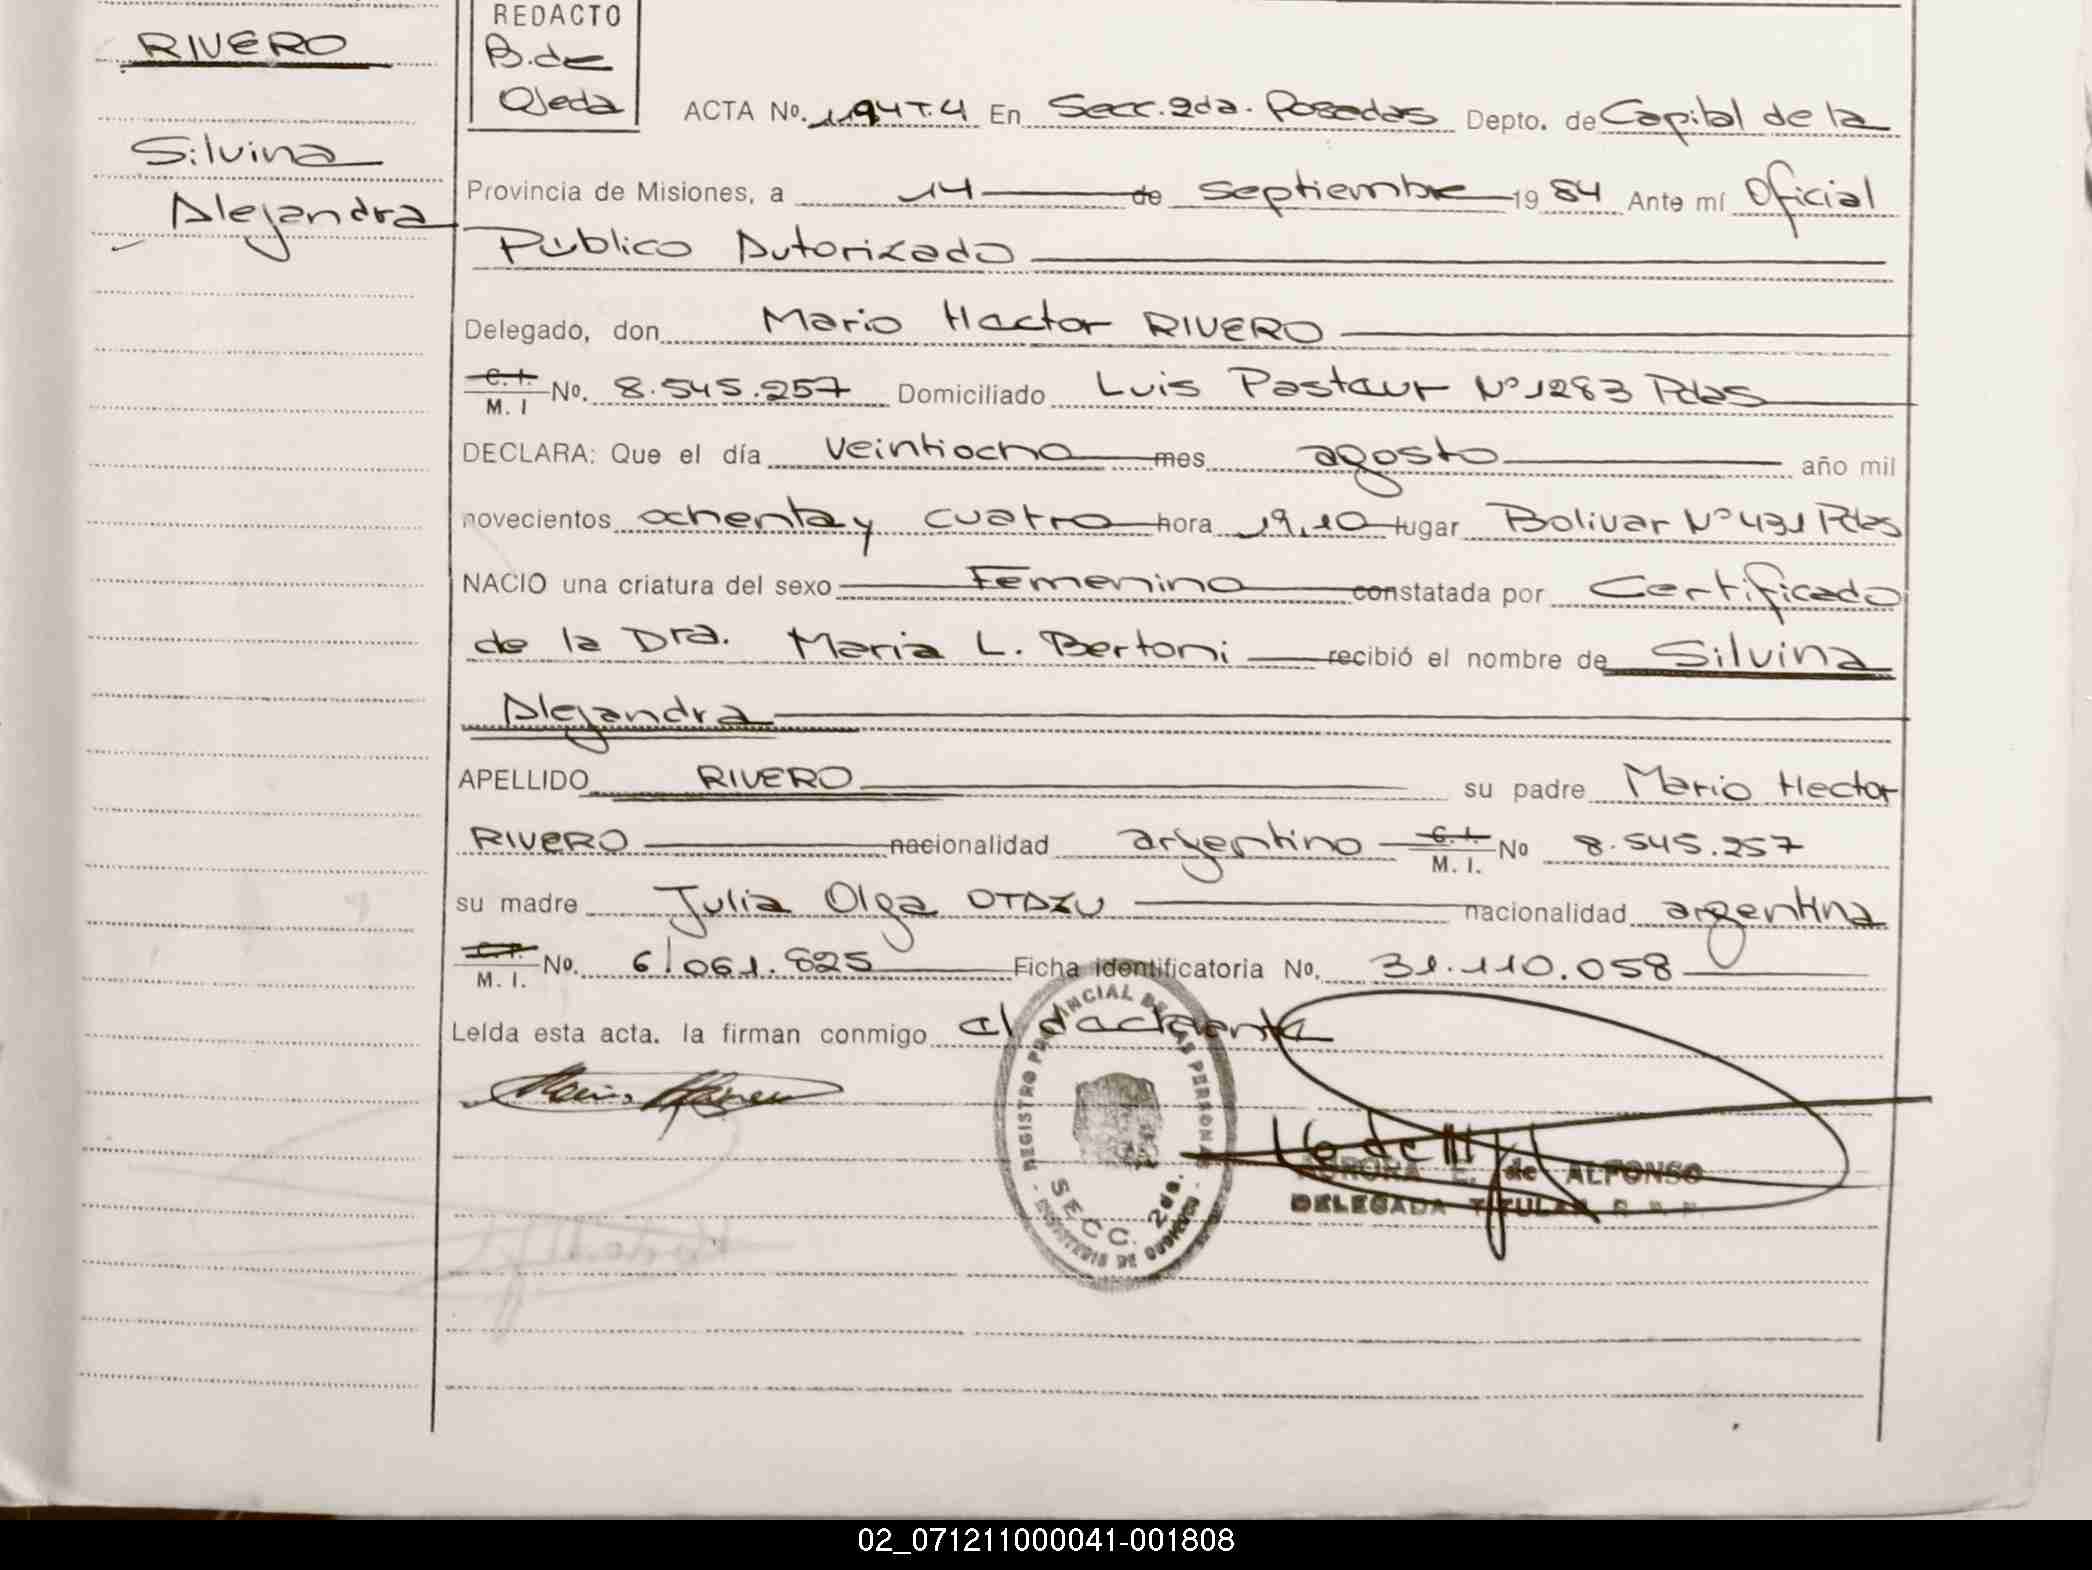 RIVERO
Silvina
Alejandra
REDACTO
B. de
Ojeda
ACTA Nº. 1194 T.4 En Secc. 2da. Posadas Depto. de Capital de la
Provincia de Misiones, a 14 de septiembre 1984 Ante mí Oficial
Público Autorizado
Delegado, don Mario Hector RIVERO
C. I. M. I Nº. 8.545.257 Domiciliado Luis Pasteur Nº 1283 Pdas
DECLARA: Que el día veintiocho mes agosto año mil
novecientos ochenta y cuatro hora 19,10 lugar Bolivar Nº 431 Pdas
NACIO una criatura del sexo Femenino constatada por Certificado
de la Dra. Maria L. Bertoni recibió el nombre de Silvina
Alejandra
APELLIDO RIVERO su padre Mario Hector
RIVERO nacionalidad argentino C. I. M. I. Nº 8.545.257
su madre Julia Olga OTAZU nacionalidad argentina
C. I. M. I. Nº. 6.061.825 Ficha identificatoria Nº. 31.110.058
Leída esta acta. la firman conmigo el declarante
REGISTRO PROVINCIAL DE LAS PERSONAS
SECC. 2da.
MINISTERIO DE GOBIERNO
AURORA E. de ALFONSO
DELEGADA TITULAR R. P. P.
02_071211000041-001808